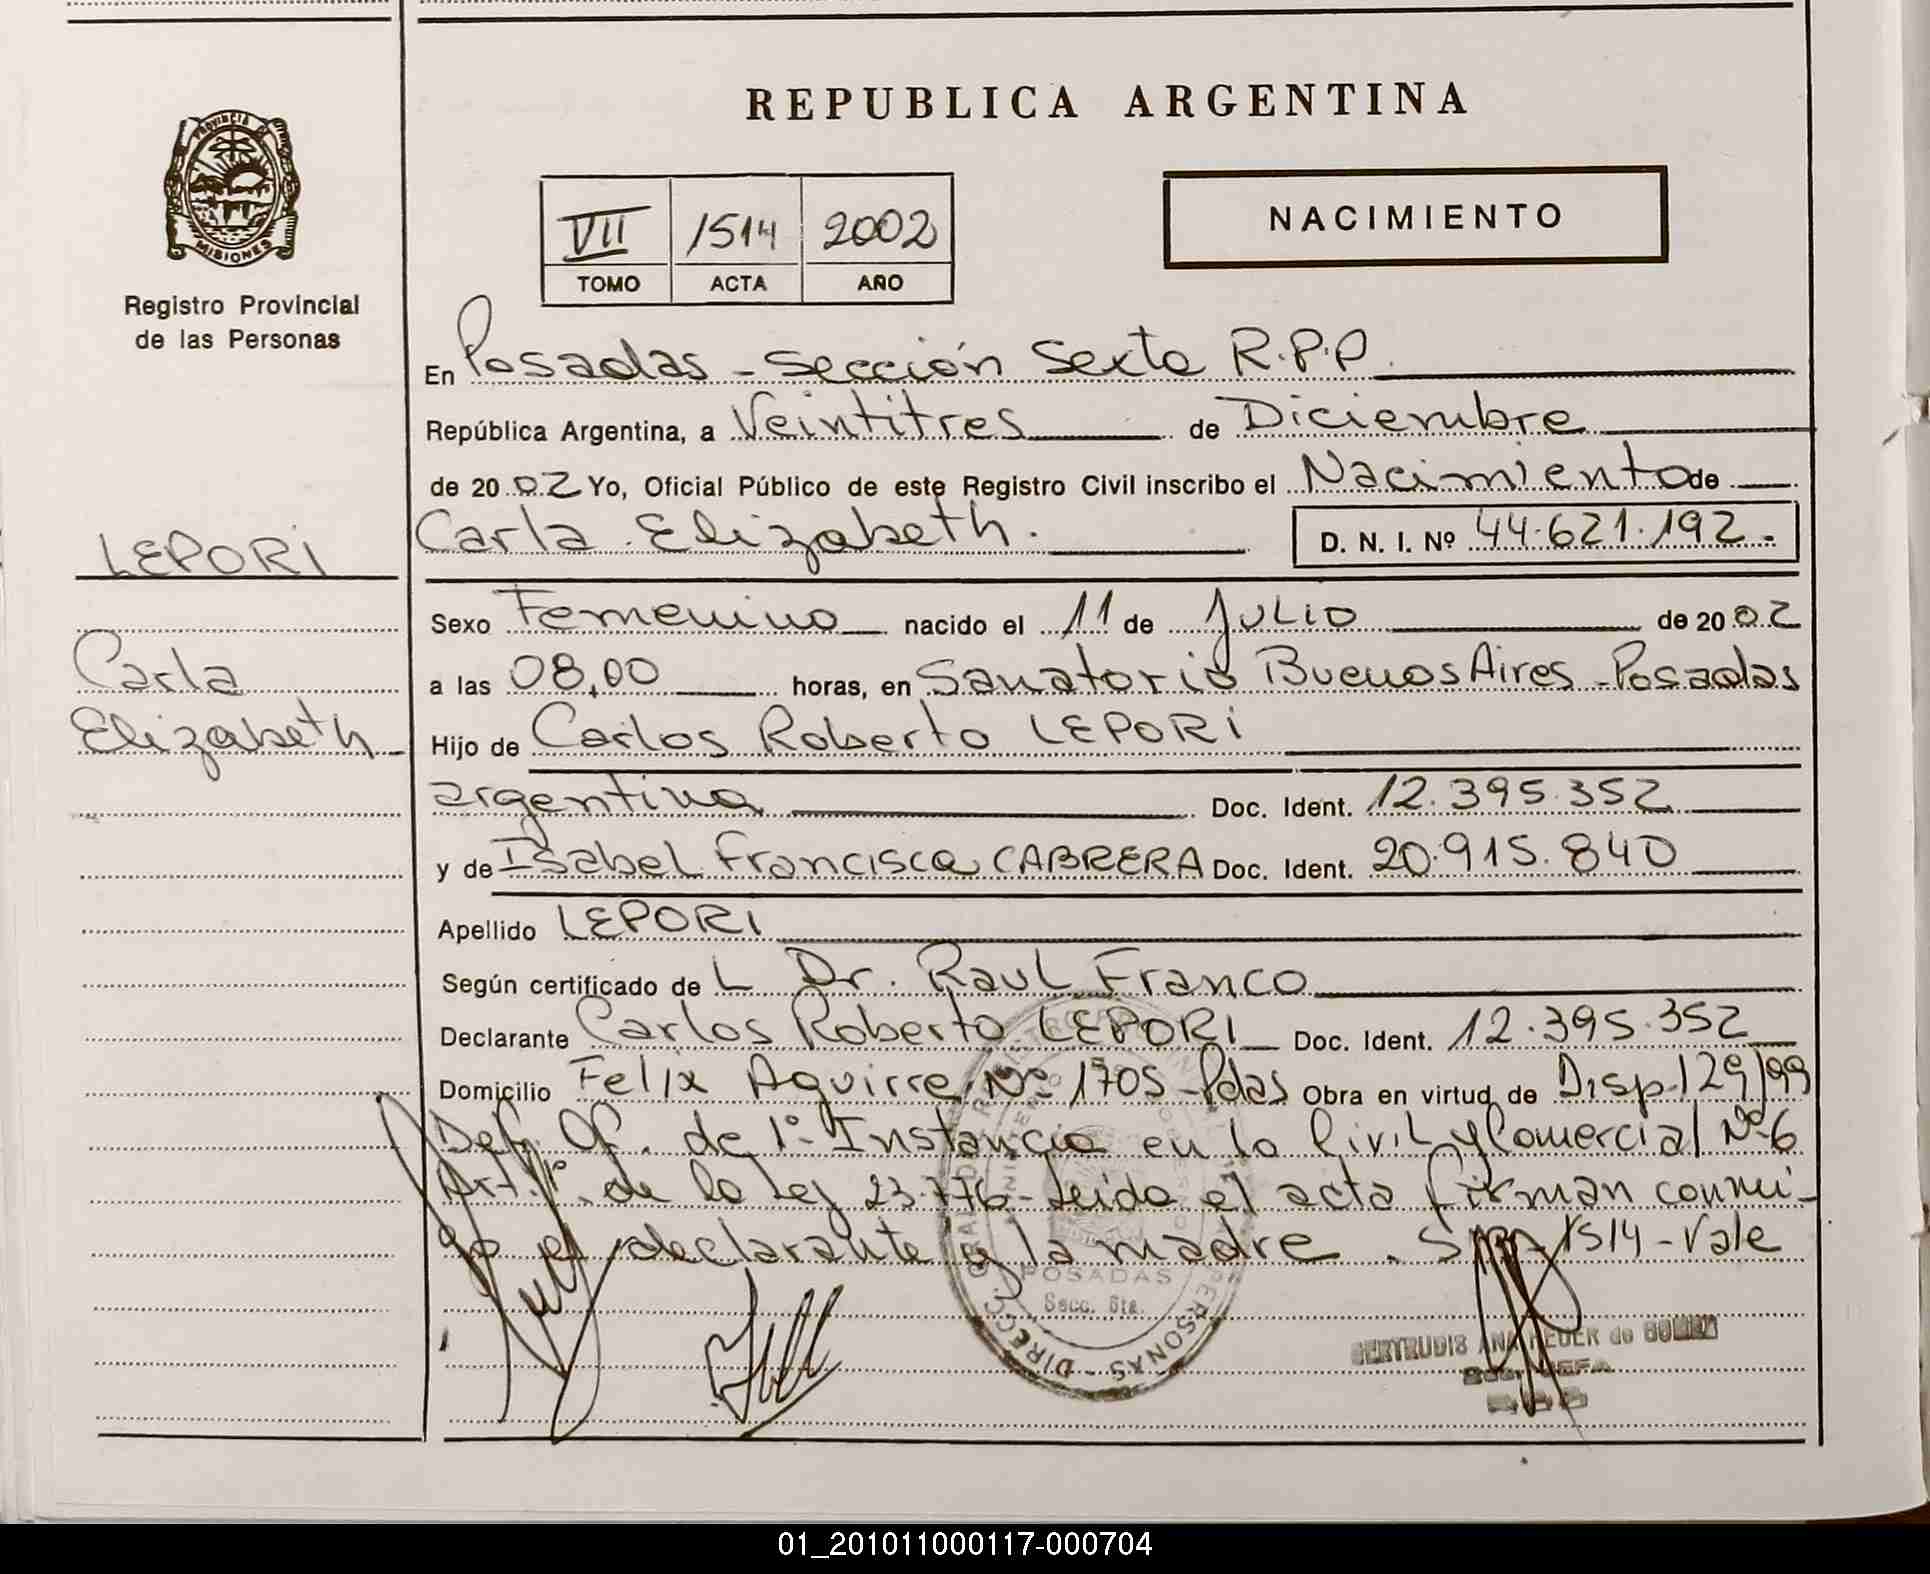 REPUBLICA ARGENTINA
PROVINCIA DE MISIONES
Registro Provincial
de las Personas
VII 1514 2002
TOMO ACTA AÑO
NACIMIENTO
En Posadas - Sección Sexta R.P.P.
República Argentina, a Veintitres de Diciembre
de 2002 Yo, Oficial Público de este Registro Civil inscribo el Nacimiento de
Carla Elizabeth. D. N. I. Nº 44.621.192.
LEPORI
Carla
Elizabeth
Sexo Femenino nacido el 11 de JULIO de 2002
a las 08,00 horas, en Sanatorio Buenos Aires - Posadas
Hijo de Carlos Roberto LEPORI
argentina Doc. Ident. 12.395.352
y de Isabel Francisca CABRERA Doc. Ident. 20.915.840
Apellido LEPORI
Según certificado de L Dr. Raul Franco
Declarante Carlos Roberto LEPORI Doc. Ident. 12.395.352
Domicilio Felix Aguirre Nº 1705 - Pdas Obra en virtud de Disp. 129/99
Def. Of. de 1º Instancia en lo Civil y Comercial Nº 6
Art. 1º de la Ley 23.776 - Leida el acta firman conmi-
go el declarante y la madre. S/R 1514 - Vale
POSADAS
Secc. 6ta.
GERTRUDIS ANA de GOMEZ
JEFA
01_201011000117-000704